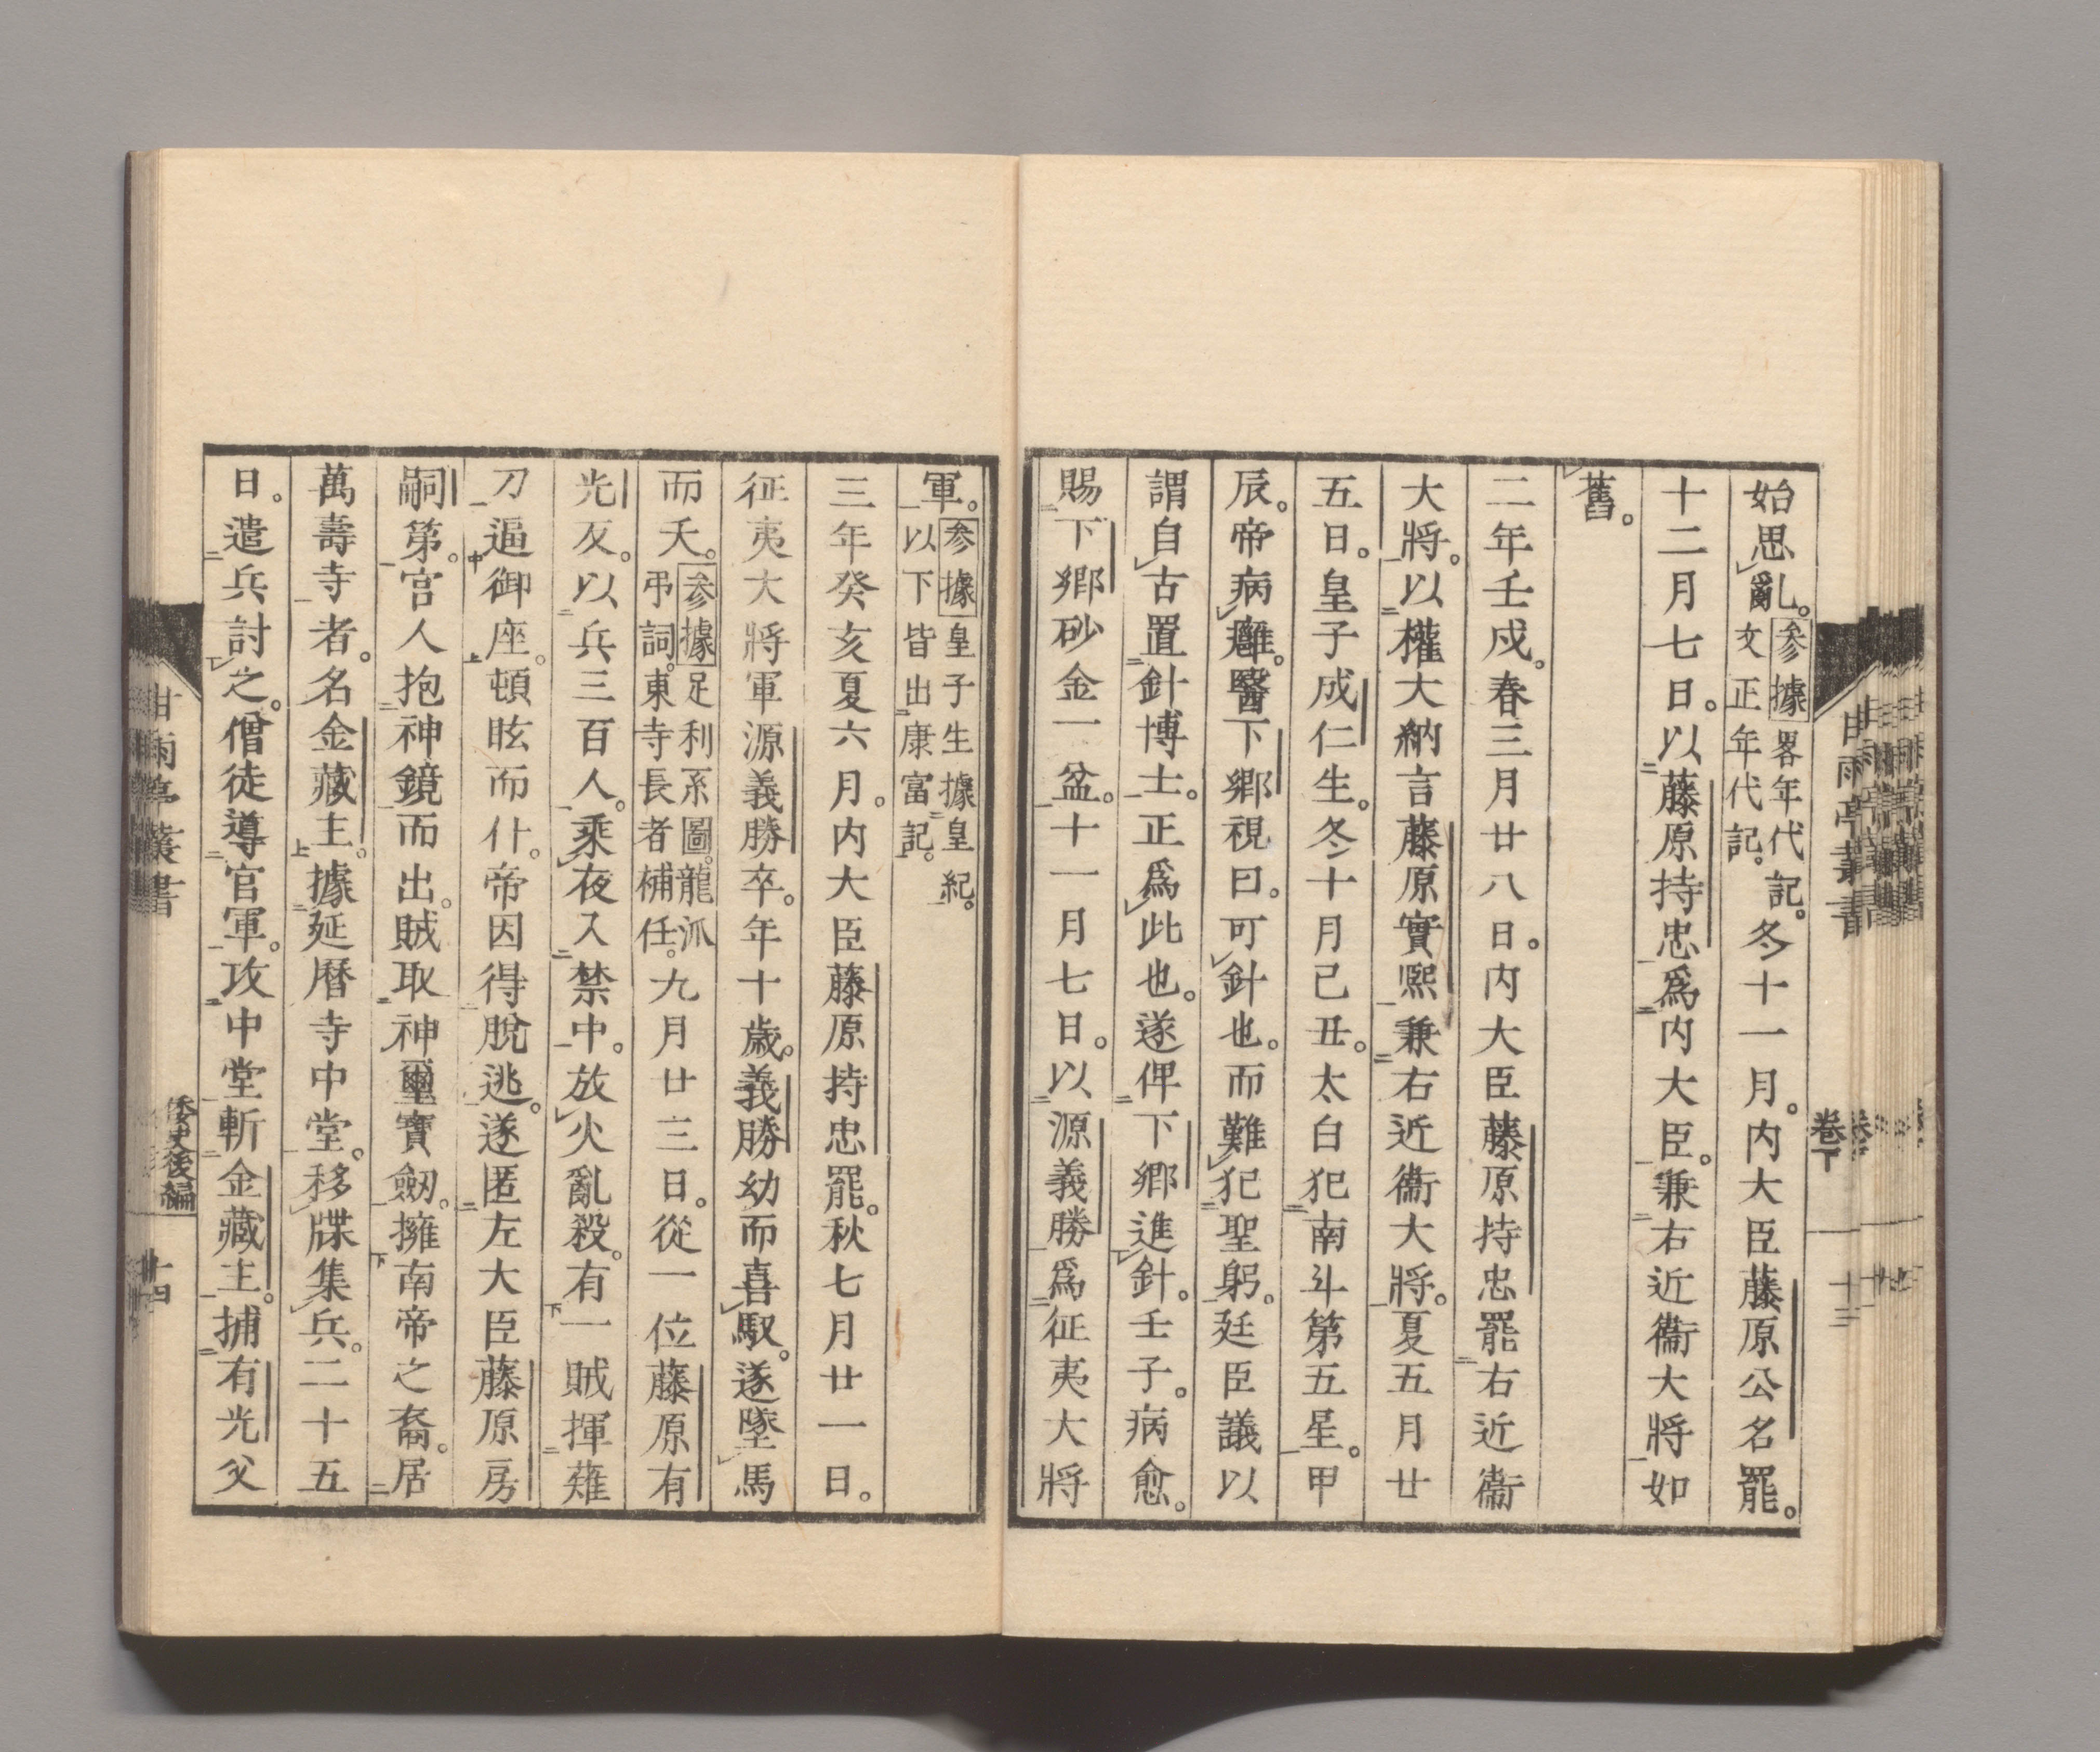 始思亂。参據畧年代記。文正年代記。冬十一月。内大臣藤原公名罷。
十二月七日。以藤原持忠爲内大臣。兼右近衞大將如
舊。
二年壬戌。春三月廿八日。内大臣藤原持忠罷右近衞
大將。以權大納言藤原實熙兼右近衞大將。夏五月廿
五日。皇子成仁生。冬十月己丑。太白犯南斗第五星。甲
辰。帝病癰。醫下郷視曰。可針也。而難犯聖躬。廷臣議以
謂自古置針博士。正爲此也。遂俾下郷進針。壬子。病愈。
賜下郷砂金一盆。十一月七日。以源義勝爲征夷大將
軍。参據皇子生據皇紀。以下皆出康富記。
三年癸亥夏六月。内大臣藤原持忠罷。秋七月廿一日。
征夷大將軍源義勝卒。年十歳。義勝幼而喜馭。遂墜馬
而夭。参據足利系圖。龍派弔詞。東寺長者補任。九月廿三日。從一位藤原有
光反。以兵三百人。乘夜入禁中。放火亂殺。有一賊揮薙
刀逼御座。頓眩而仆。帝因得脱逃。遂匿左大臣藤原房
嗣第。宮人抱神鏡而出。賊取神璽寶劔。擁南帝之裔。居
萬壽寺者。名金藏主。據延暦寺中堂。移牒集兵。二十五
日。遣兵討之。僧徒導官軍。攻中堂斬金藏主。捕有光父
甘雨亭叢書
卷下
十三
甘雨亭叢書
倭史後編
十四